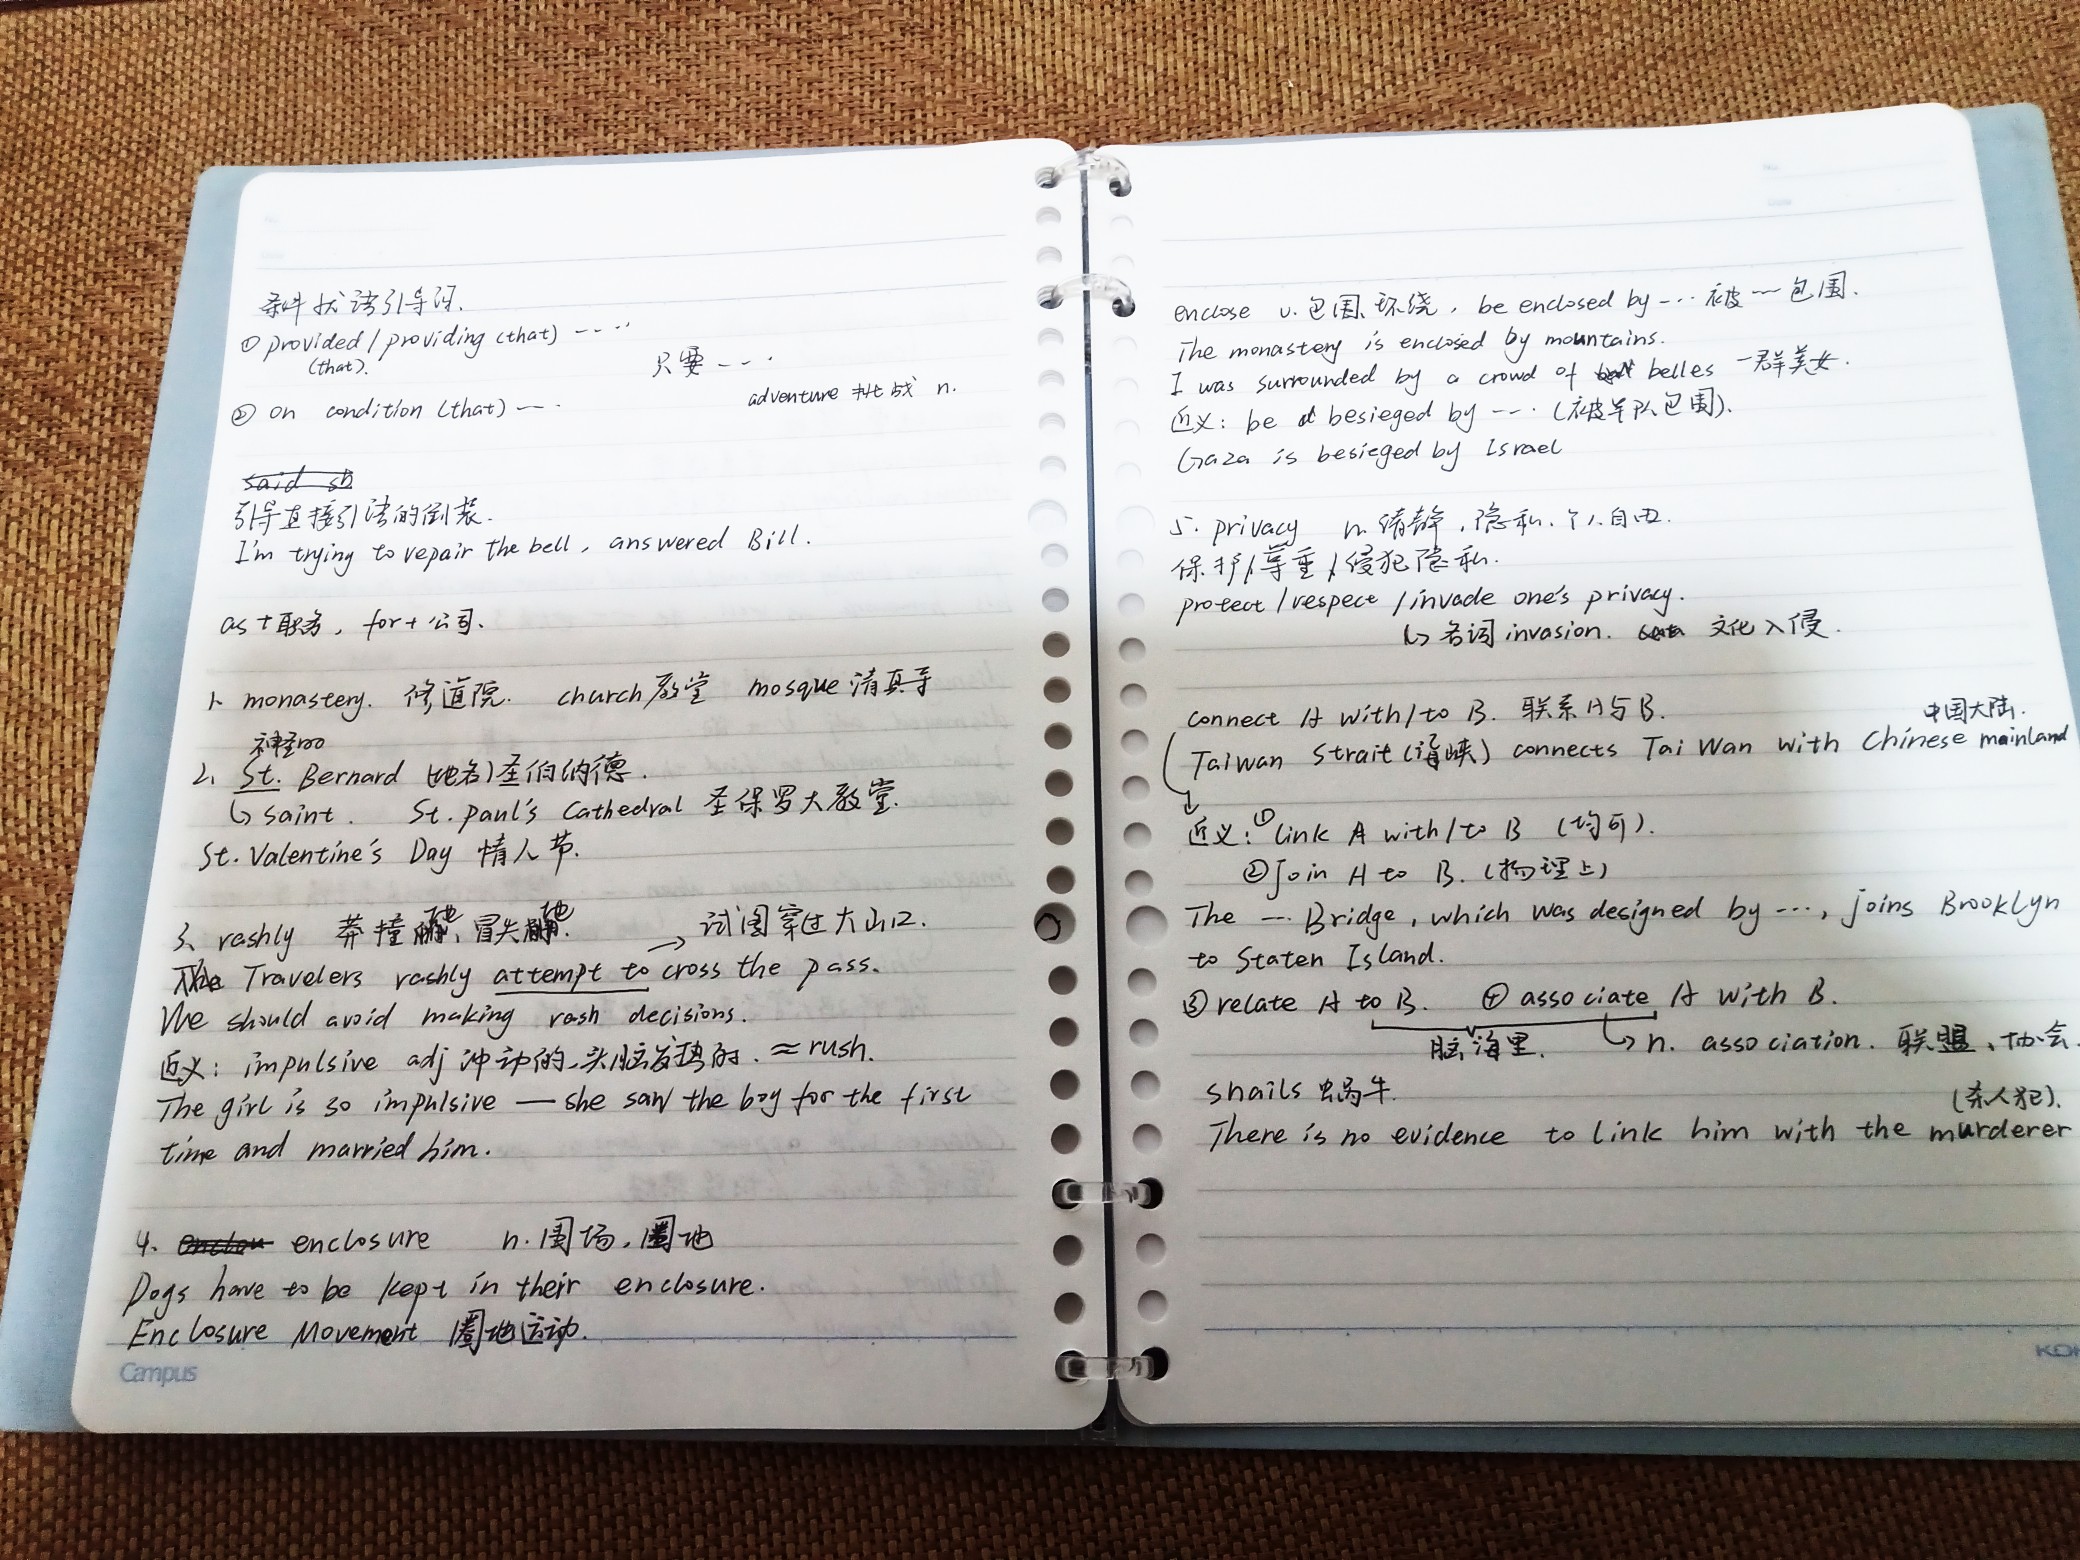 条件状语引导词.
① provided / providing (that) ‐‐‐‐
(that).
只要 ‐‐‐
adventure 挑战 n.
② on condition (that) ‐‐‐
said sb
引导直接引语的倒装.
I'm trying to repair the bell, answered Bill.
as + 职务, for + 公司.
1. monastery. 修道院. church 教堂 mosque 清真寺
2. St. Bernard (地名) 圣伯纳德.
↳ saint. St. Paul's Cathedral 圣保罗大教堂.
St. Valentine's Day 情人节.
3、rashly 莽撞地、冒失地. → 试图穿过大山口.
The Travelers rashly attempt to cross the pass.
We should avoid making rash decisions.
近义: impulsive adj 冲动的、头脑发热的. ≈ rush.
The girl is so impulsive — she saw the boy for the first
time and married him.
4. enclosure n. 围场, 圈地
Dogs have to be kept in their enclosure.
Enclosure Movement 圈地运动.
Campus
enclose v. 包围、环绕, be enclosed by ‐‐‐ 被 ‐‐ 包围.
The monastery is enclosed by mountains.
I was surrounded by a crowd of belles 一群美女.
近义: be besieged by ‐‐‐ (被军队包围).
Gaza is besieged by Israel
5. privacy n. 清静, 隐私、个人自由.
保护/尊重/侵犯隐私.
protect / respect / invade one's privacy.
↳ 名词 invasion. 文化入侵.
connect A with/to B. 联系A与B.
中国大陆.
Taiwan Strait (海峡) connects Tai Wan with Chinese mainland
近义: ① link A with/to B (均可).
② join A to B. (物理上)
The ‐‐ Bridge, which was designed by ‐‐‐, joins Brooklyn
to Staten Island.
③ relate A to B. ④ associate A with B.
脑海里. ↳ n. association. 联盟、协会.
snails 蜗牛.
(杀人犯).
There is no evidence to link him with the murderer